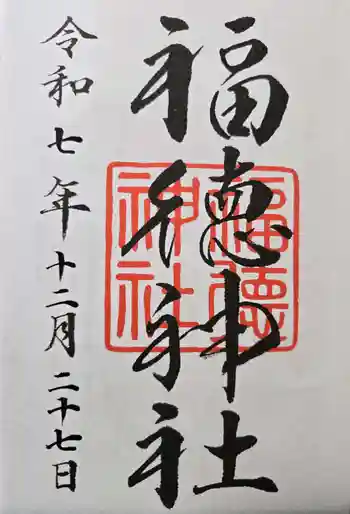 福徳神社
令和七年十二月二十七日
福徳
神社